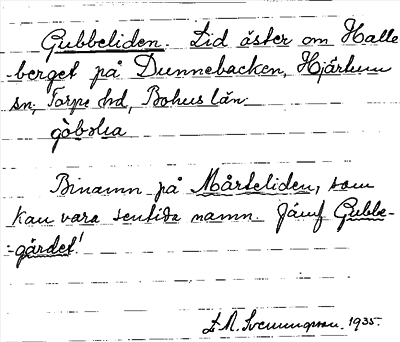 Gubbeliden. Lid öster om Halle
-berget på Dunnebacken, Hjärtum
sn, Torpe hd, Bohus län.
Binamn på Mårteliden, som
kan vara sentida namn. Jämf Gubbe-
-gärdet!
Svenungsson. 1935.